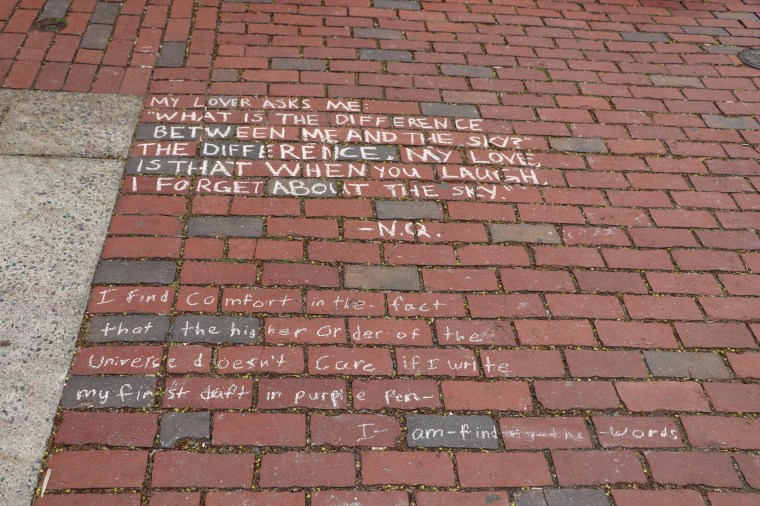 MY LOVER ASKS ME:
"WHAT IS THE DIFFERENCE
BETWEEN ME AND THE SKY?"
THE DIFFERENCE, MY LOVE,
IS THAT WHEN YOU LAUGH,
I FORGET ABOUT THE SKY."
-N.Q.
I find Comfort in the fact
that the higher Order of the
Universe doesn't Care if I write
my first draft in purple Pen-
I-am-find the-words